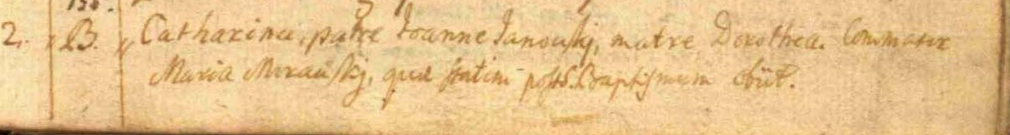 2. B. Catharina, patre Joanne Janouskj, matre Dorothea. Commater
Maria Mirauskj, quæ statim post S. Baptismum obiit.